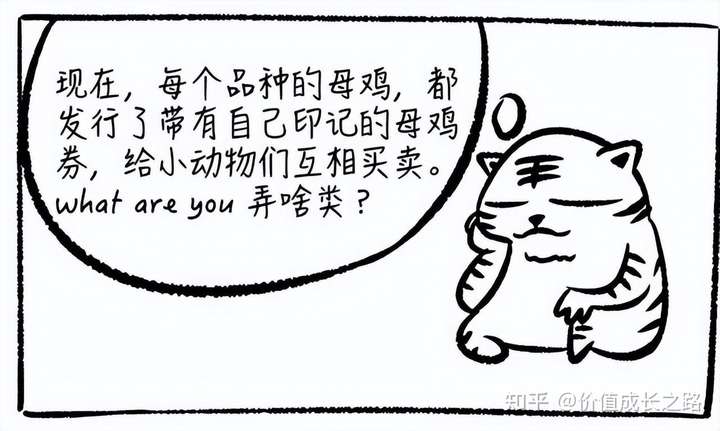 现在，每个品种的母鸡，都
发行了带有自己印记的母鸡
券，给小动物们互相买卖。
what are you 弄啥类？
知乎 @价值成长之路